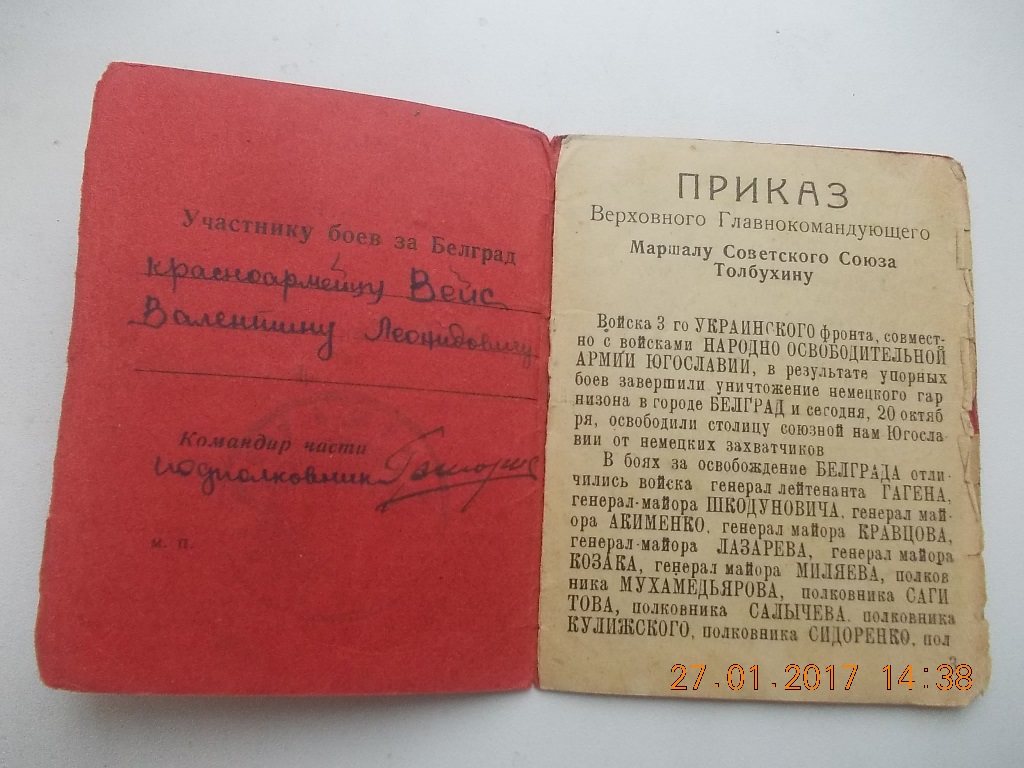 Участнику боев за Белград
красноармейцу Вейс
Валентину Леонидовичу
Командир части
подполковник
м. п.
ПРИКАЗ
Верховного Главнокомандующего
Маршалу Советского Союза
Толбухину
Войска 3 го УКРАИНСКОГО фронта, совмест-
но с войсками НАРОДНО ОСВОБОДИТЕЛЬНОЙ
АРМИИ ЮГОСЛАВИИ, в результате упорных
боев завершили уничтожение немецкого гар
низона в городе БЕЛГРАД и сегодня, 20 октяб
ря, освободили столицу союзной нам Югосла-
вии от немецких захватчиков
В боях за освобождение БЕЛГРАДА отли-
чились войска генерал лейтенанта ГАГЕНА,
генерал-майора ШКОДУНОВИЧА, генерал май-
ора АКИМЕНКО, генерал майора КРАВЦОВА,
генерал-майора ЛАЗАРЕВА, генерал майора
КОЗАКА, генерал майора МИЛЯЕВА, полков
ника МУХАМЕДЬЯРОВА, полковника САГИ
ТОВА, полковника САЛЫЧЕВА, полковника
КУЛИЖСКОГО, полковника СИДОРЕНКО, пол
3
27.01.2017 14:38